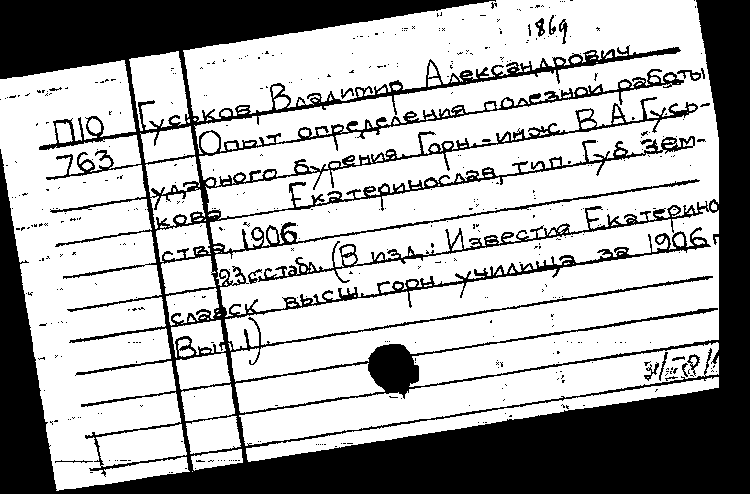 1869
П10 Гуськов, Владимир Александрович.
763 Опыт определения полезной работы
ударного бурения. Горн.-инж. В.А.Гусь-
кова Екатеринослав, тип. Губ. зем-
ства, 1906
23 с. с табл. (В изд.: Известия Екатерино
славск высш. горн. училища за 1906 г
Вып.1).